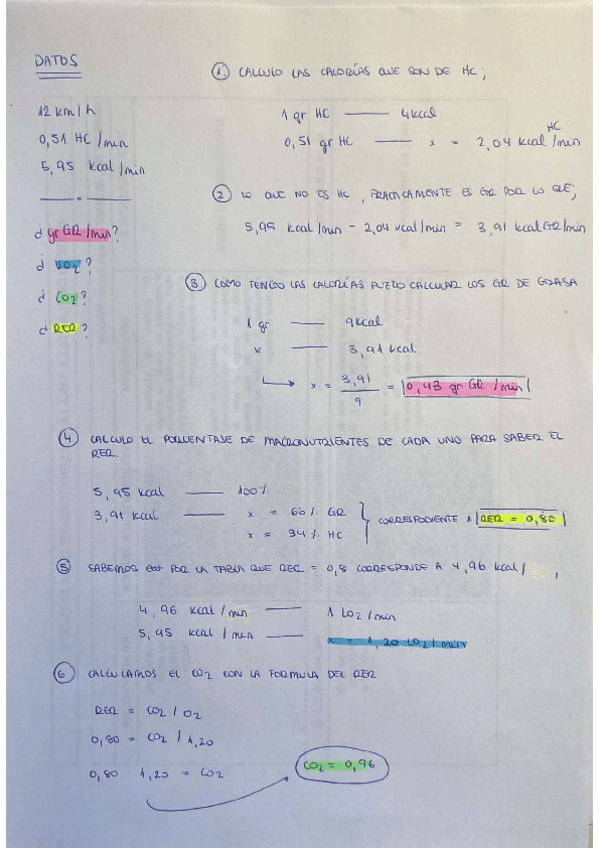 DATOS
12 km/h
0,51 HC/min
5,95 kcal/min
¿gr GR/min?
¿ VO2?
¿ CO2?
¿ RER?
① CALCULO LAS CALORÍAS QUE SON DE HC;
1 gr HC — 4kcal
0,51 gr HC — x = 2,04 kcal HC/min
② LO QUE NO ES HC, PRACTICAMENTE ES GR POR LO QUE;
5,95 kcal/min - 2,04 kcal/min = 3,91 kcal GR/min
③ COMO TENGO LAS CALORÍAS PUEDO CALCULAR LOS GR DE GRASA
1 gr — 9kcal
x — 3,91 kcal
x = 3,91 / 9 = 0,43 gr GR/min
④ CALCULO EL PORCENTAJE DE MACRONUTRIENTES DE CADA UNO PARA SABER EL
RER.
5,95 kcal — 100%
3,91 kcal — x = 66% GR
x = 34% HC
CORRESPONDIENTE A RER = 0,80
⑤ SABEMOS POR LA TABLA QUE RER = 0,8 CORRESPONDE A 4,96 kcal/ ;
4,96 kcal/min — 1 LO2/min
5,95 kcal/min — x = 1,20 LO2/min
⑥ CALCULAMOS EL CO2 CON LA FORMULA DEL RER
RER = CO2 / O2
0,80 = CO2 / 1,20
0,80 · 1,20 = CO2
CO2 = 0,96